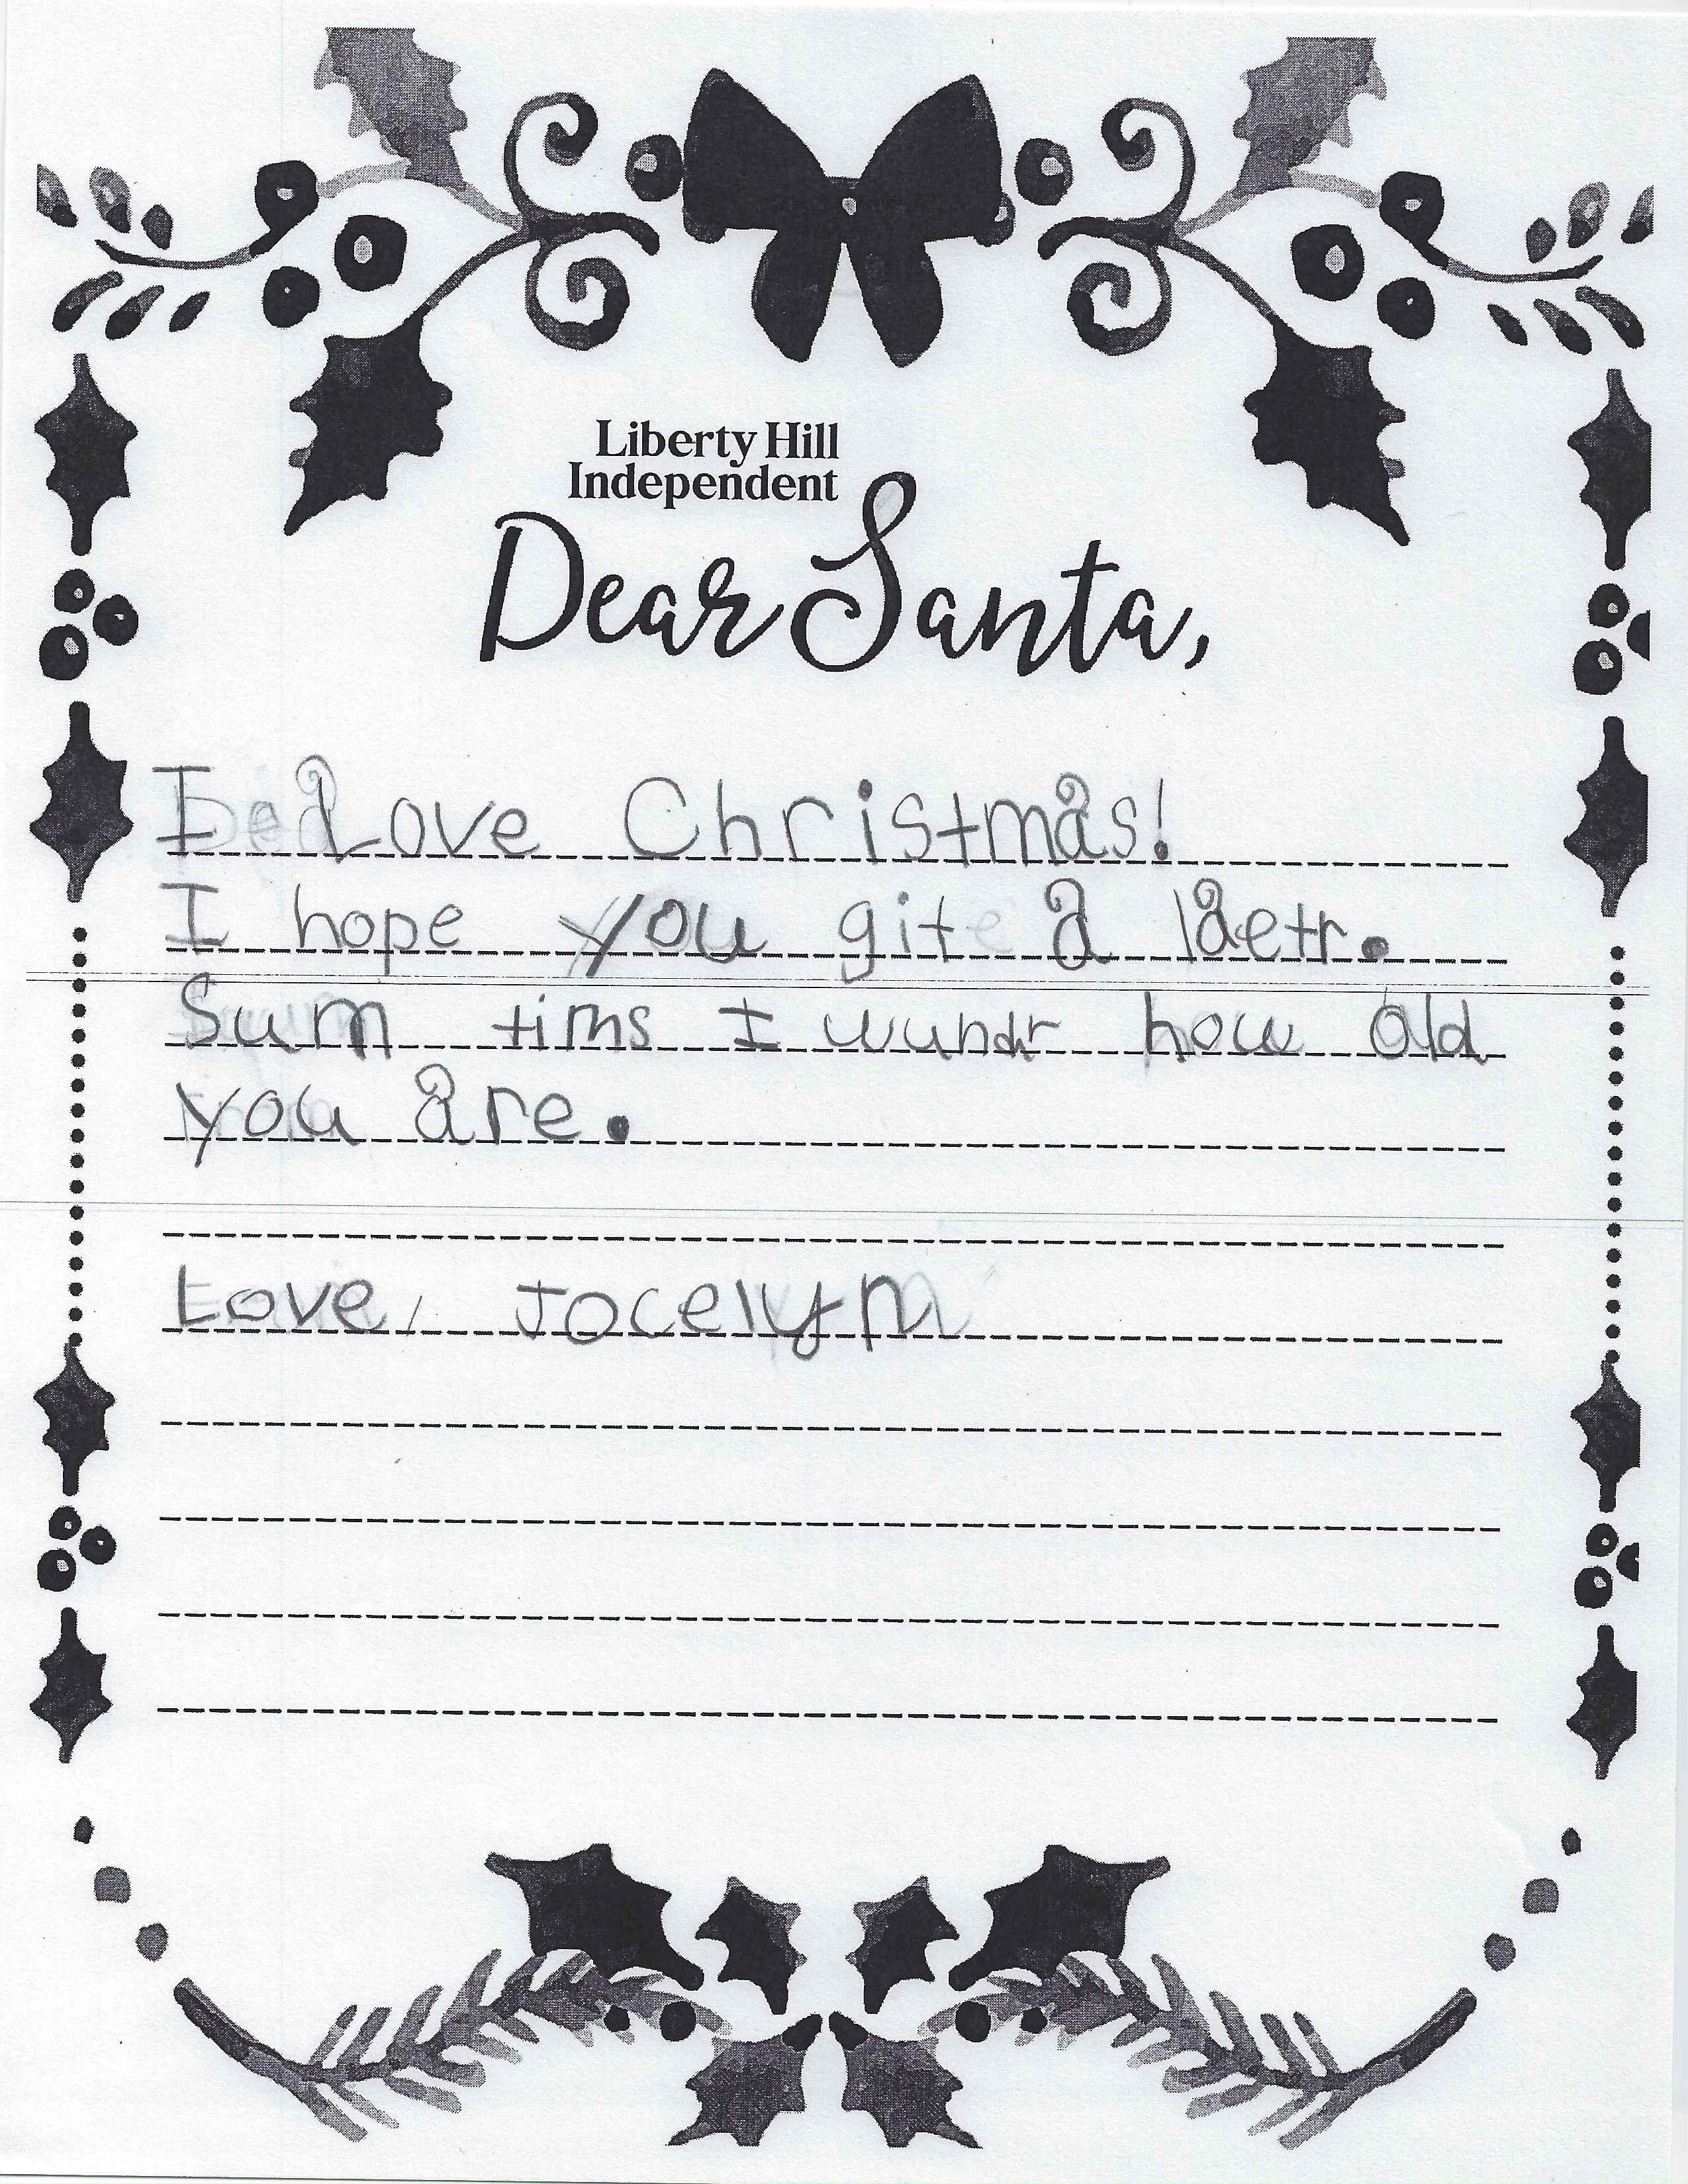 Liberty Hill
Independent
Dear Santa,
I Love Christmas!
I hope you git a laetr.
Sum tims I wundr how old
you are.
Love, Jocelyn